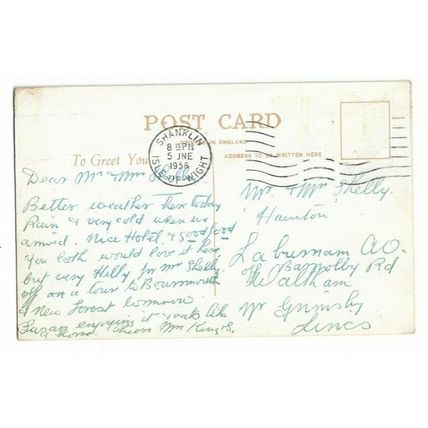 POST CARD
IN ENGLAND
To Greet You
ADDRESS TO BE WRITTEN HERE
SHANKLIN
8 15 PM
5 JNE
1956
ISLE OF WIGHT
Dear Mr & Mrs Shelly
Better weather here today
Rain & very cold when we
arrived. Nice Hotel & good food
You both would love it here
but very Hilly for Mr Shelly.
off on a tour to Bournemouth
& New Forest tomorrow
Susan enjoying it eats like
a horse. Cheers Mrs King & S.
Mr & Mrs Shelly.
Laburnam
Barnolby Rd
Waltham
Nr Grimsby
Lincs